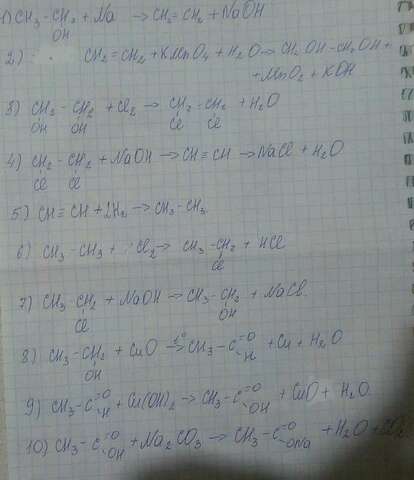 1) CH3-CH2 + Na → CH2=CH2 + NaOH
OH
2) CH2=CH2 + KMnO4 + H2O → CH2OH-CH2OH +
+ MnO2 + KOH
3) CH2-CH2 + Cl2 → CH2-CH2 + H2O
OH OH Cl Cl
4) CH2-CH2 + NaOH → CH≡CH → NaCl + H2O
Cl Cl
5) CH≡CH + 2H2 → CH3-CH3
6) CH3-CH3 + Cl2 → CH3-CH2 + HCl
Cl
7) CH3-CH2 + NaOH → CH3-CH2 + NaCl
Cl OH
8) CH3-CH2 + CuO →t° CH3-C=O + Cu + H2O
OH H
9) CH3-C=O + Cu(OH)2 → CH3-C=O + CuO + H2O
H OH
10) CH3-C=O + Na2CO3 → CH3-C=O + H2O + CO2
OH ONa